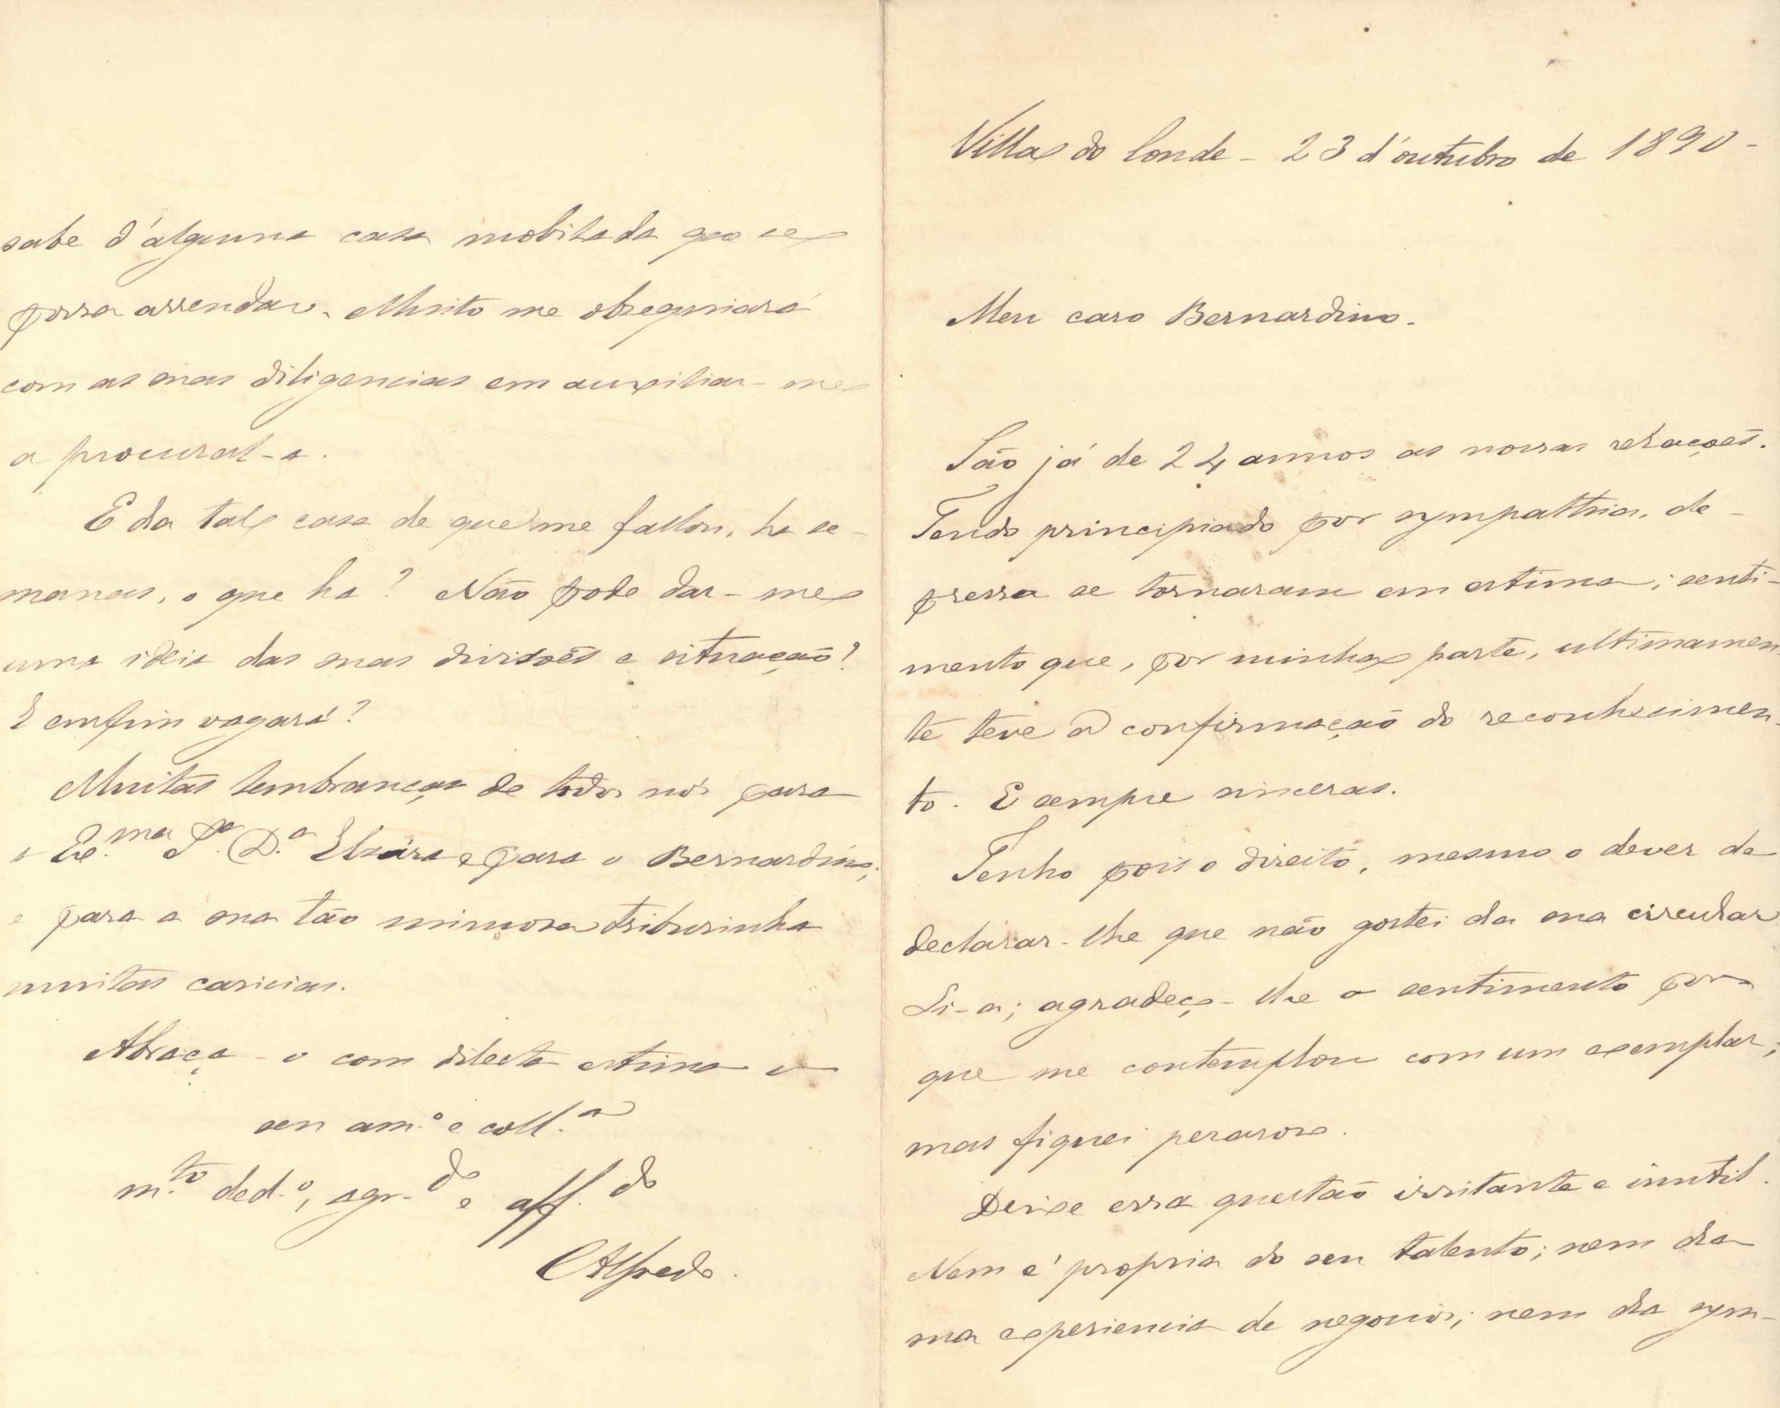 Villa do Conde - 23 d'outubro de 1890 -
Meu caro Bernardino.
São já de 24 annos as nossas relações.
Tendo principiado por sympathia, de-
pressa se tornaram em estima; senti-
mento que, por minha parte, ultimamen
te teve a confirmação do reconhecimen-
to. E sempre sinceras.
Tenho pois o direito, mesmo o dever de
declarar-lhe que não gostei da sua circular
Li-a; agradeço-lhe o sentimento por
que me contemplou com um exemplar;
mas fiquei pesaroso.
Deixe essa questão irritante e inutil.
Nem é propria do seu talento; nem da
sua experiencia de negocios; nem da sym-
sabe d'alguma casa mobilada que se
possa arrendar. Muito me obsequiará
com as suas diligencias em auxiliar-me
a procural-a.
E da tal casa de que me fallou, ha se-
manas, o que ha? Não pode dar-me
uma ideia das suas divisões e situação?
E emfim vagará?
Muitas lembranças de todos nós para
a Ex.ma Sr.a D.a Elzira e para o Bernardino;
e para a sua tão mimosa tribusinha
muitas caricias.
Abraça-o com dilecta estima o
seu am.o e coll.a
m.to ded.o, agr.do e aff.do
Alfredo.